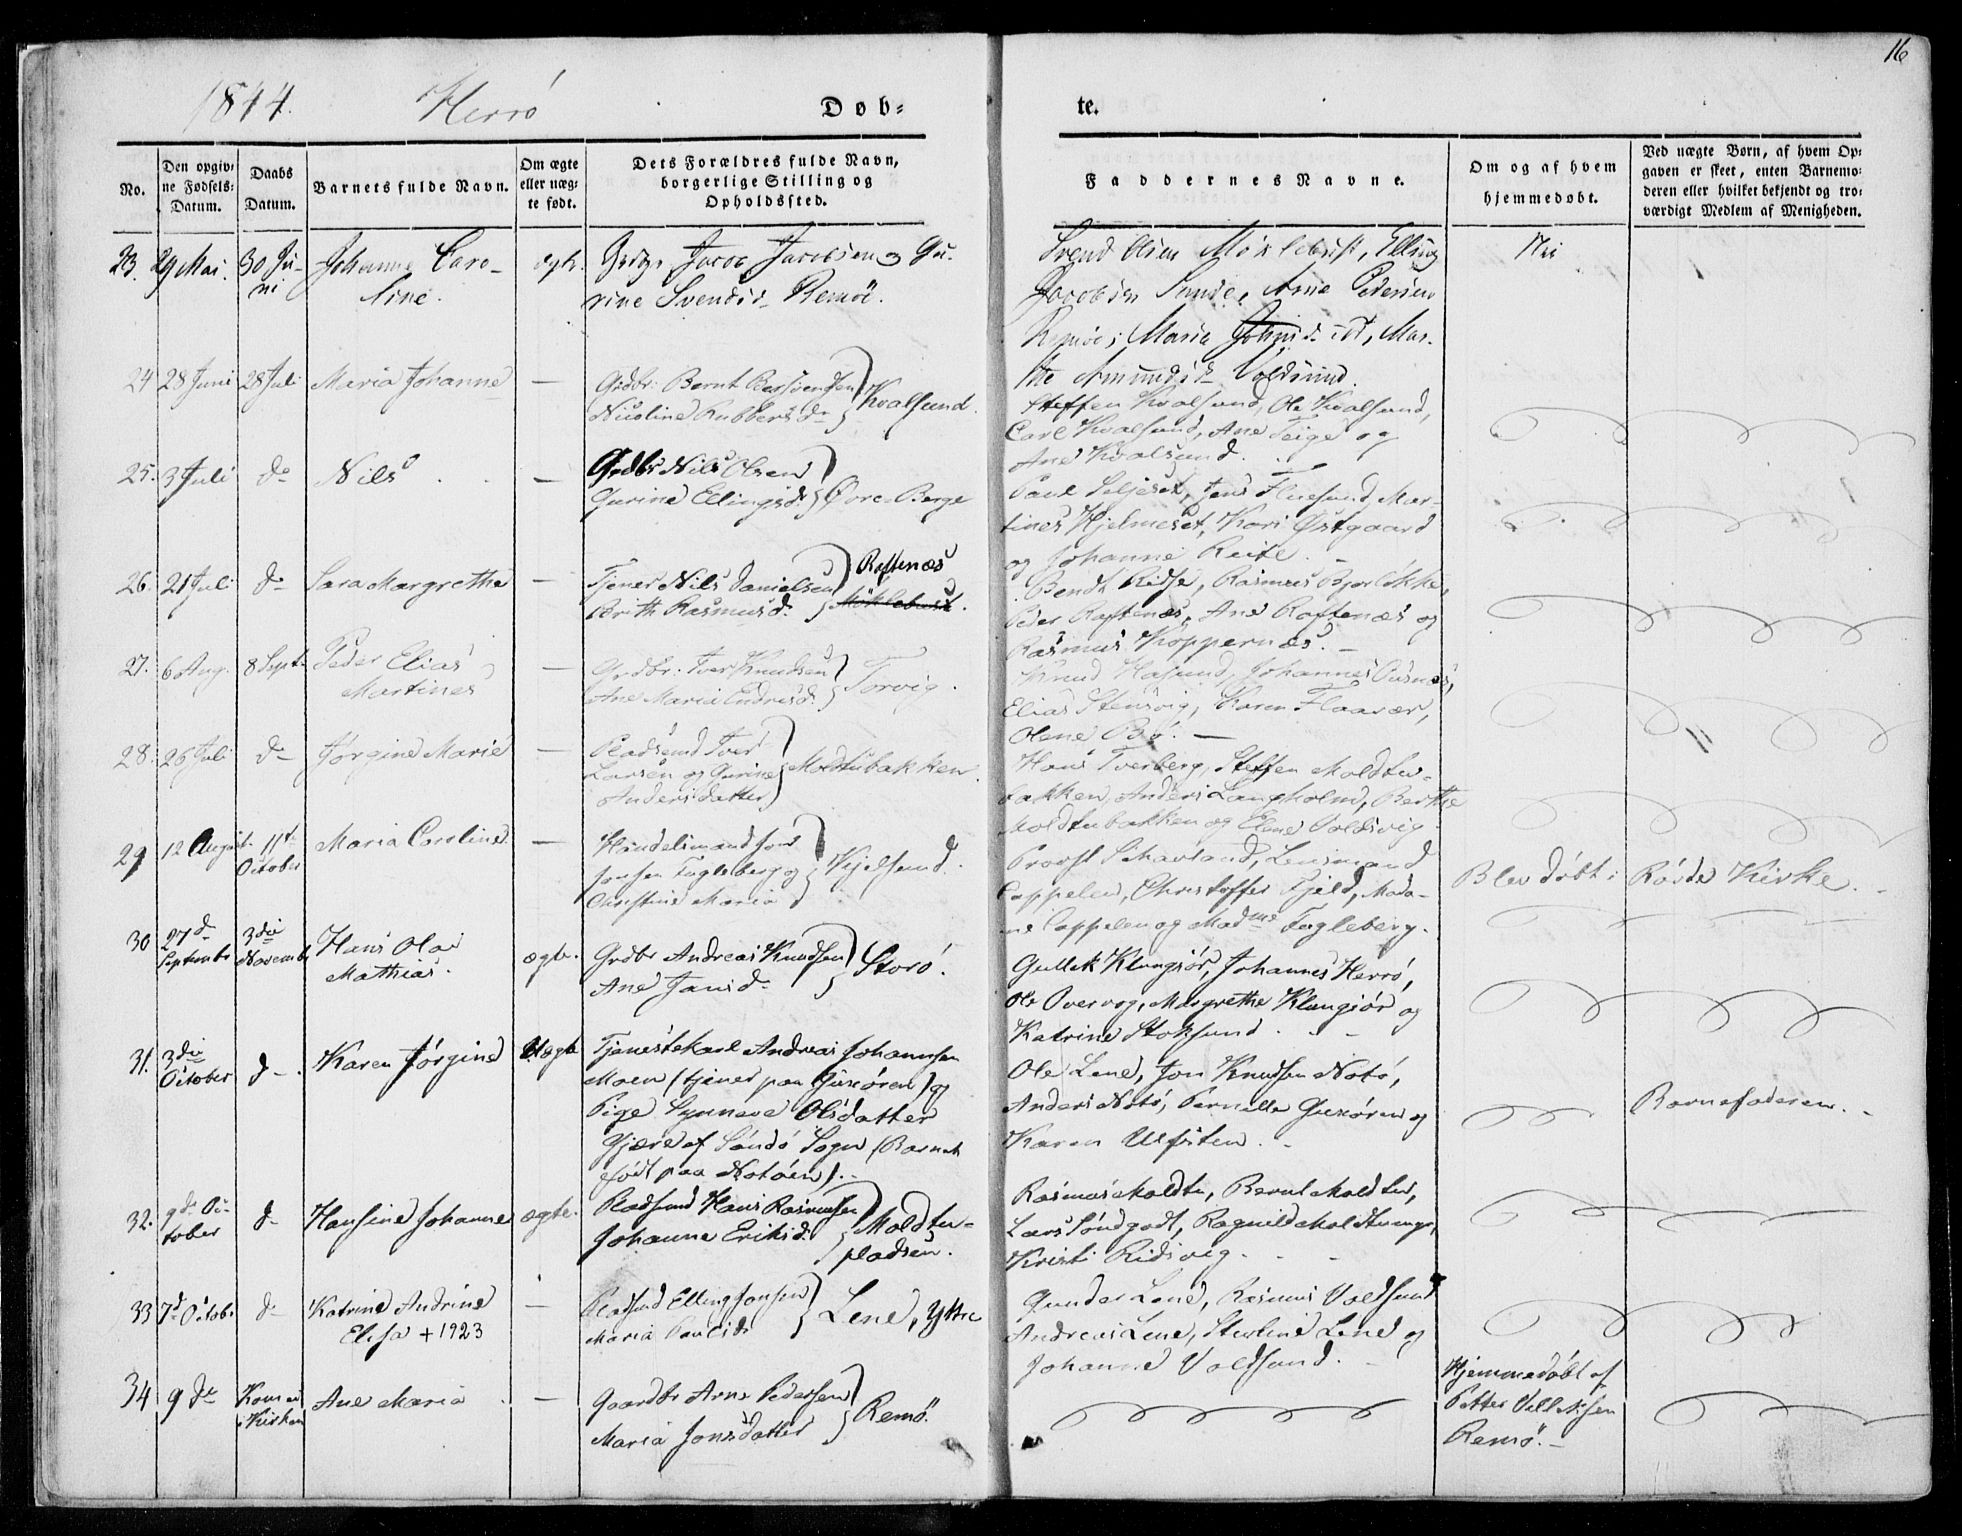 16
1844. Herrö Døb= te.
No.
Den opgiv=
ne Fødsels=
Datum.
Daabs
Datum.
Barnets fulde Navn.
Om ægte
eller uæg=
te født.
Dets Forældres fulde Navn,
borgerlige Stilling og
Opholdssted.
Faddernes Navne.
Om og af hvem
hjemmedøbt.
Ved uægte Børn, af hvem Op=
gaven er skeet, enten Barnemo=
deren eller hvilket bekjendt og tro=
værdigt Medlem af Menigheden.
23. 29 Mai. 30 Ju-
ni
Johanne Caro-
line.
ægte.
Jacob Jacobsen og Gu-
rine Svendsd. Remöe.
Svend Olsen Möklebust, Elling
Jacobsen Sunde, Arne Pedersen
Remöe, Maria Johnsd. ibd, Mar-
the Amundsd. Voldsund.
Nei
24 28 Juni 28 Juli Maria Johanne —
Grdbr: Bernt
Nicoline Rubbersd. } Kvalsund.
Steffen Kvalsund, Ole Kvalsund,
Carl Kvalsund, Ane Teige og
Ane Kvalsund.
25. 3 Juli do Nils —
Grdbr Nils Olsen
Gurine Ellingsd. } Øvre-Berge
Paul Seljeset, Jens Fluesund, Mar-
tines Hjelmeset, Kari Østgaard
og Johanne Reite. —
26. 21 Juli do Sara Margrethe —
Tjener Nils Danielsen
Brith Rasmusd. } Raftenæs
Möklebust.
Bendt Ridse, Rasmus Bjorløkke,
Peder Raftenæs, Ane Raftenæs og
Rasmus Koppernæs. —
27. 6 Aug. 8 Septr Peder Elias
Martines —
Grdbr: Iver Knudsen
Ane Maria Endresd. } Torvig.
Knud Hasund, Johannes
Elias Stensvig, Karen Flaavær,
Olene Bø. —
28. 26 Juli do Jørgine Marie —
Pladsmd Iver
Larsen og Gurine
Andersdatter } Moldtubakken.
Hans Tverberg, Steffen Moldtu-
bakken, Anders Langholm, Berthe
Moldtubakken og Elene Voldsvig
29 12 August. 11te
October
Maria Caroline —
Handelsmand Jens
Jensen Fugleberg og
Christine Maria } Kjelsund.
Provst Schavland, Lensmand
Cappelen, Christoffer Fjeld, Mada-
me Cappelen og Madme Fugleberg.
Blev döbt i Rövde Kirke.
30 27de
Septembr
3die
Novembr
Hans Olai
Mathias.
ægte.
Grdbr Andreas Knudsen
Ane Jansd. } Storö.
Gullik Klungsör, Johannes Herrö,
Ole Overvog, Margrethe Klungsör og
Katrine Stoksund.
31. 3die
October
do Karen Jörgine Uægte
Tjenestekarl Andreas Johannesen
Moen (tjener paa Gurskøen) og
Pige Synneve Olsdatter
Gjære af Sandö Sogn (Barnet
födt paa Notöen).
Ole Lene, Jon Knudsen Notö,
Anders Notö, Pernille Gurskøen og
Karen Ulfsten.
Barnefaderen.
32. 9de Oc-
tober
do Hansine Johanne ægte.
Pladsmd Hans Rasmusen
Johanne Eriksd. } Moldtu-
pladsen.
Rasmus Moldtu, Bernt Moldtu,
Lars Söndgodt, Ragnild
Kristi Ridsvig.
33 7de Octobr do Katrine Andrine
Elisa + 1923 —
Pladsmd Elling Jonsen
Maria Paulsd. } Lene, Yttre
Gunder Lene, Rasmus Voldsund
Andreas Lene, Stesline Lene og
Johanne Voldsund.
34 9 de Kom ei
i Kirken
Ane Maria —
Gaardbr Arne Pedersen
Maria Jonsdatter } Remö.
Hjemmedöbt af
Petter Villiksen
Remö. —